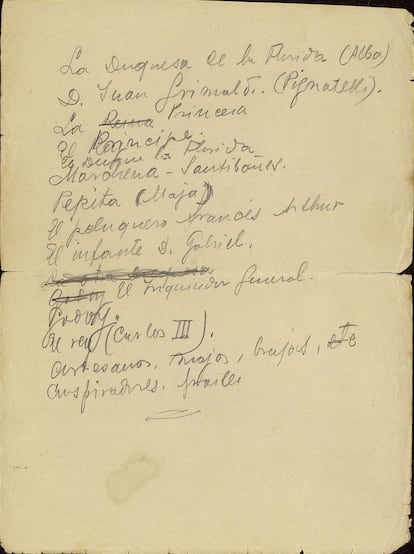 La Duquesa de la Florida (Alba)
D. Juan Grimaldi. (Pignatelli).
La Princesa
El Príncipe.
El Duque la Florida
Marchena - Santibáñez.
Pepita (Maja)
El peluquero francés Arthur
El infante D. Gabriel.
El Inquisidor General.
Godoy.
El rey (Carlos III).
Artesanos, majos, brujas, etc
Conspiradores, frailes